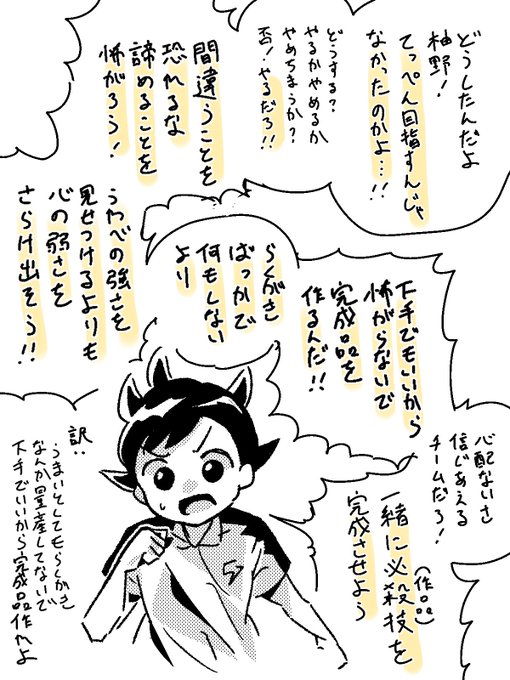 どうしたんだよ
柚野！
てっぺん目指すんじゃ
なかったのかよ…!!
どうする？
やるかやめるか
やめちまうか？
否！やるだろ!!
間違うことを
恐れるな
諦めることを
怖がろう！
うわべの強さを
見せつけるよりも
心の弱さを
さらけ出そう!!
らくがき
ばっかで
何もしない
より
下手でもいいから
怖がらないで
完成品を
作るんだ!!
心配ないさ
信じあえる
チームだろ！
一緒に必殺技を
(作品)
完成させよう
訳:
うまいとしてもらくがき
なんか量産してないで
下手でいいから完成品作れよ